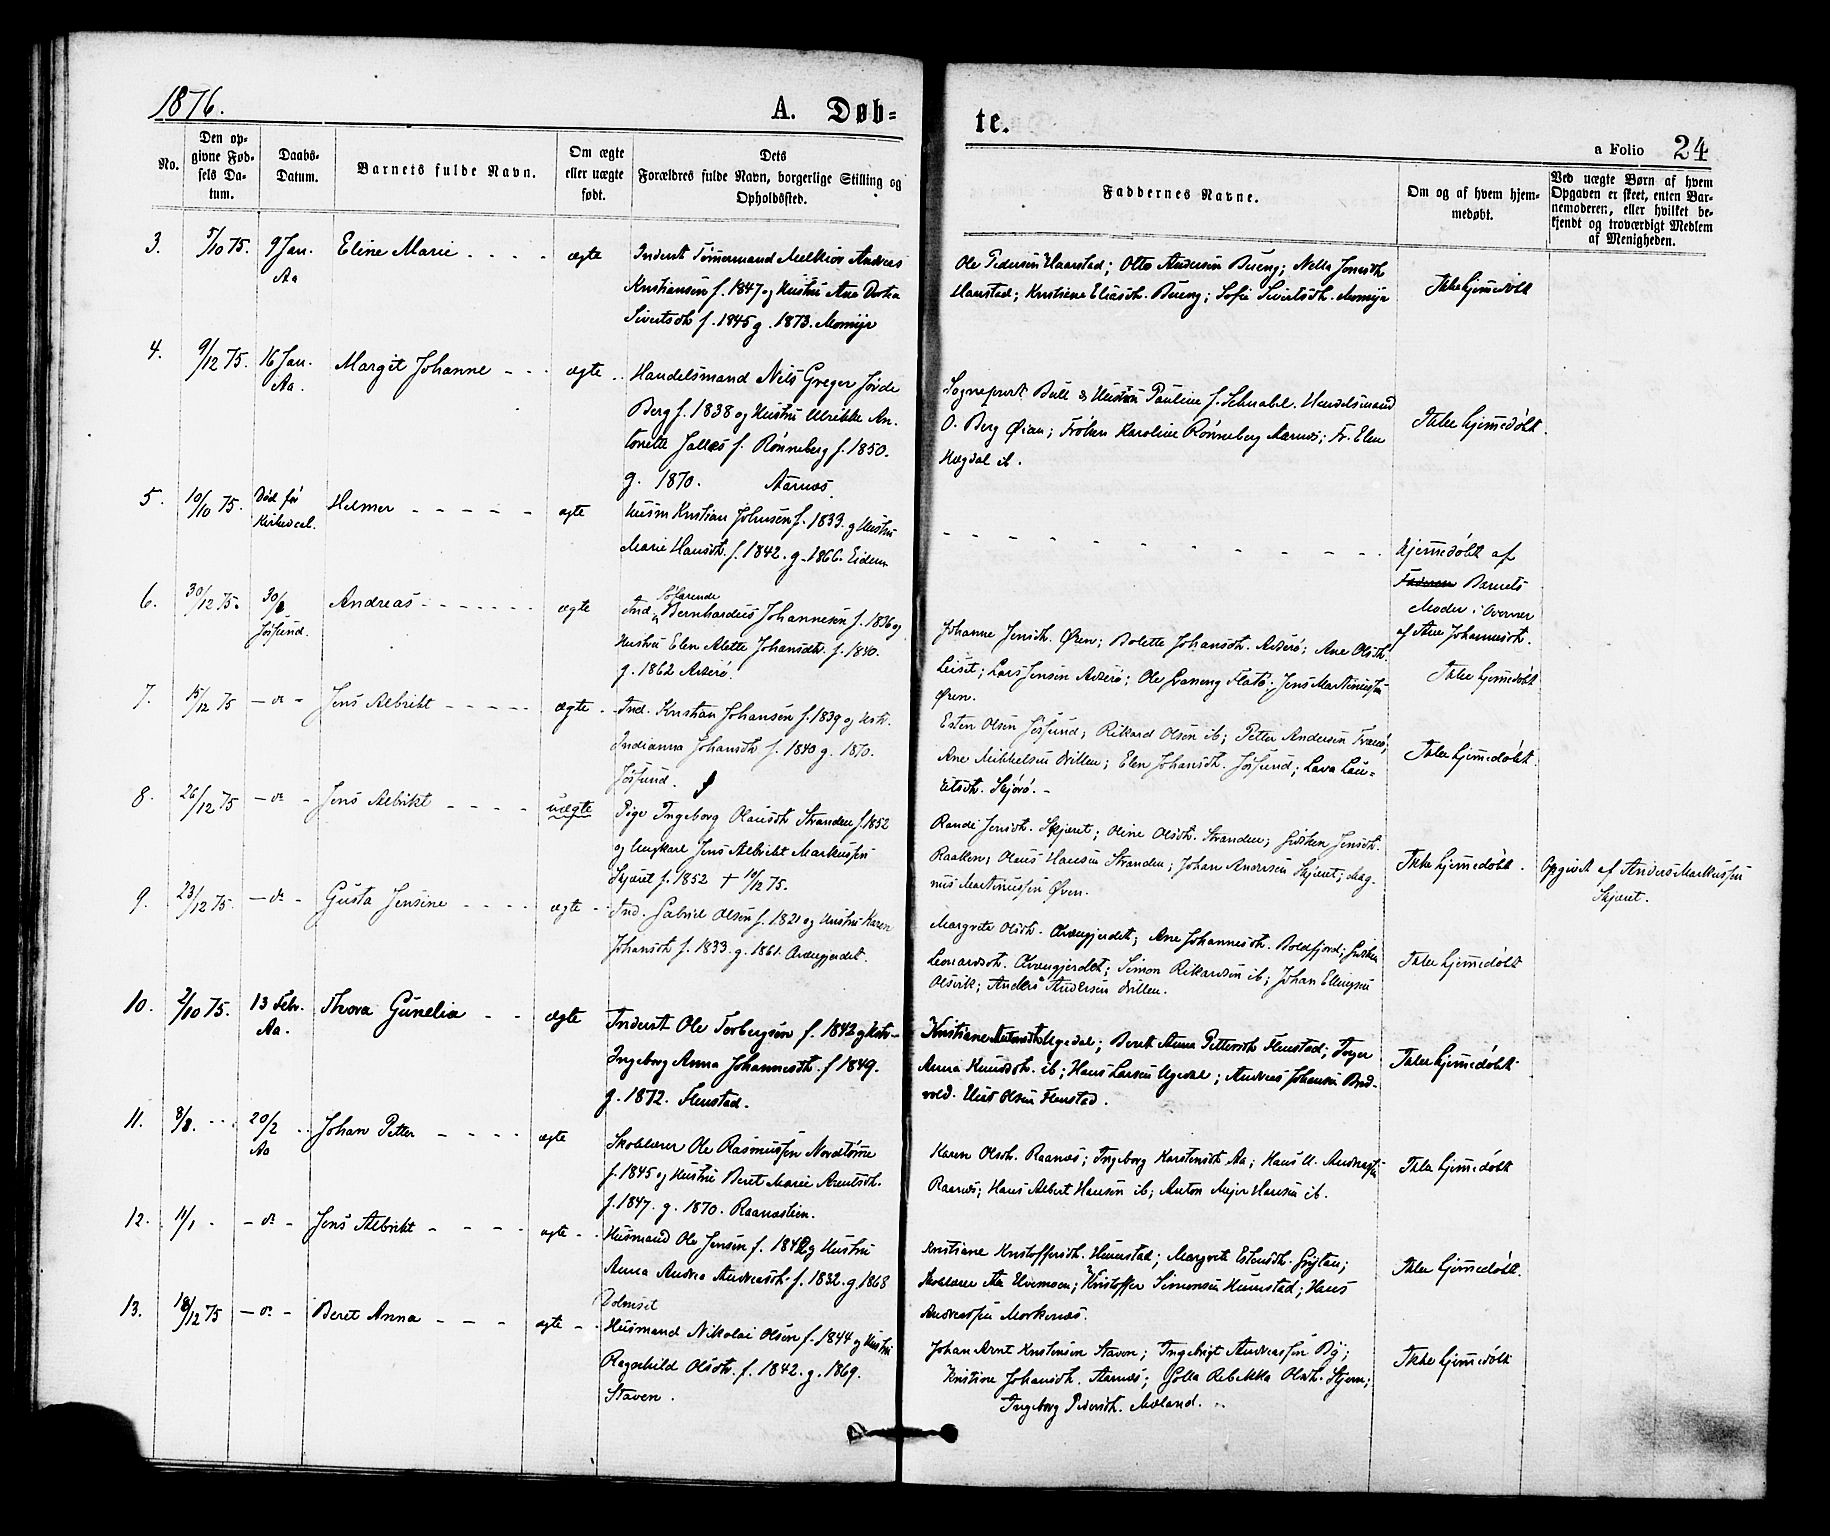 1876.
A. Døb-
te.
a Folio 24
No.
Den op-
givne Fød-
sels Da-
tum.
Daabs-
Datum.
Barnets fulde Navn.
Om ægte
eller uægte
født.
Dets
Forældres fulde Navn, borgerlige Stilling og
Opholdssted.
Faddernes Navne.
Om og af hvem hjem-
medøbt.
Ved uægte Børn af hvem
Opgaven er skeet, enten Bar-
nemoderen, eller hvilket be-
kjendt og troværdigt Medlem
af Menigheden.
3. 5/10 75. 9 Jan. Aa Eline Marie ægte
Inderst Tømermand Melkior Andreas
Kristiansen f. 1847 og Hustru Ane Dortea
Sivertsdt f. 1845 g. 1873. Momyr
Ole Pedersen Haarstad; Otto Andersen Bueng; Nella Jonsdt
Haarstad; Kristiane Eliasdt. Bueng; Sofie Sivertsdt. Momyr
Ikke hjemedøbt
4. 9/12 75. 16 Jan. Aa. Margit Johanne ægte
Handelsmand Nils Greger
Berg f. 1838 og Hustru Ulrikke An-
tonette f. Rønneberg f. 1850.
g. 1870. Aarnæs.
Sogneprest Bull & Hustru Pauline f. Schnabel. Handelsmand
O. Berg Øian; Frøken Karoline Rønneberg Aarnæs; Fr. Elen
Hægdal ib.
Ikke hjemedøbt.
5. 10/10 75. Død før Kirkedaab. Helmer ægte
Husm Kristian Johnsen f. 1833. og Hustru
Marie Hansdt. f. 1842. g. 1866. Eidem
Hjemedøbt af
Faderen Barnets
Moder i Overvær
af Ane Johannesdt.
6. 30/12 75. 30/1 Jøssund. Andreas ægte
Ind. og Søfarende Bernhardus Johannesen f. 1836 og
Hustru Elen Alette Johansdt. f. 1840.
g. 1862 Asserø.
Johanne Jensdt. Øren; Bolette Johansdt. Asserø; Ane Olsdt.
Leiset; Lars Jensen Asserø; Ole Flatø; Jens Martinussen
Øren.
Ikke hjemedøbt
7. 15/12 75 - do - Jens Albrikt ægte
Ind. Kristian Johansen f. 1839 og Hstr.
Indianna Johansdt f. 1840 g. 1870.
Jøssund.
Esten Olsen Jøssund; Rikard Olsen ib; Petter Andersen
Ane Mikkelsen Villen; Elen Johansdt. Jøssund; Lava Lau-
ritsdt. Skjørø.
Ikke hjemedøbt.
8. 26/12 75 - do - Jens Albrikt uægte
Pige Ingeborg Olausdt Stranden f. 1852
og Ungkarl Jens Albrikt Markussen
Skjæret f. 1852 † 10/12 75.
Randi Jensdt. Skjæret; Oline Olsdt. Stranden; Jensdt.
Raaken; Olaus Hansen Stranden; Johan Andersen Skjæret; Mag-
nus Martinussen Øren.
Ikke hjemedøbt.
Opgivet af Anders Markussen
Skjæret.
9. 23/12 75. - do - Gusta Jensine ægte
Ind. Gabriel Olsen f. 1821 og Hustru Karen
Johansdt f. 1833. g. 1861. Aveengjerdet.
Margrete Olsdt. Aveengjerdet; Ane Johannesdt. Boldfjord;
Leonardsdt. Aveengjerdet; Simon Rikardsen ib; Johan Ellingsen
Olsvik; Anders Andersen Villen.
Ikke hjemedøbt
10. 2/10 75. 13 Febr. Aa. Thora Gunelia ægte
Inderst Ole Torbergsen f. 1842 og Hstr-
Ingeborg Anna Johannesdt. f 1849.
g. 1872. Flenstad.
Kristiane Antonsdt Ugedal; Beret Anna Pettersdt Flenstad;
Anna Knudsdt. ib; Hans Larsen Ugedal; Andreas Johansen Bred-
vold. Olsen Flenstad.
Ikke hjemedøbt
11. 8/8. 20/2 Aa Johan Petter ægte
Skolelærer Ole Rasmussen Nordtømme
f. 1845 og Hustru Beret Marie Arentsdt.
f. 1847. g. 1870. Raanæslien.
Karen Olsdt. Raanæs; Ingeborg Karstensdt Aa; Hans U. Andreassen
Raanæs; Hans Albert Hansen ib; Anton Mejer Hansen ib.
Ikke hjemedøbt
12. 11/1. - do - Jens Albrikt ægte
Husmand Ole Jensen f. 1842 og Hustru
Anna Andrea Andreasdt. f. 1832. g. 1868
Dolmset
Kristiane Kristoffersdt. Humstad; Margrete Estensdt. Grytan;
Skolelærer Hvemoen; Kristoffer Simonsen Humstad; Hans
Andreassen Morkenæs.
Ikke hjemedøbt.
13. 18/12 75 - do - Beret Anna ægte
Husmand Nikolai Olsen f. 1844 og Hustru
Ragnhild Olsdtr. f. 1842. g. 1869.
Staven.
Johan Arnt Kristensen Staven; Ingebrigt Andreassen By;
Kristine Johansdt. Aarnæs; Golla Rebekka Olsdt. Stjern;
Ingeborg Pedersdt. Moland.
Ikke hjemedøbt